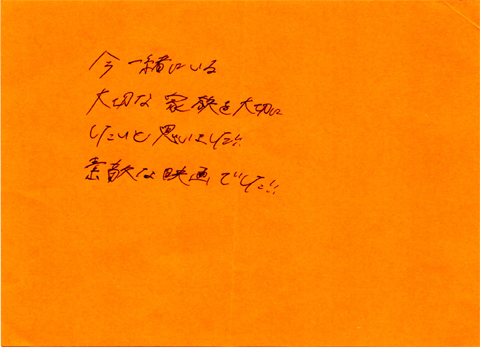 今一緒にいる
大切な家族を大切に
したいと思いました!!
素敵な映画でした!!